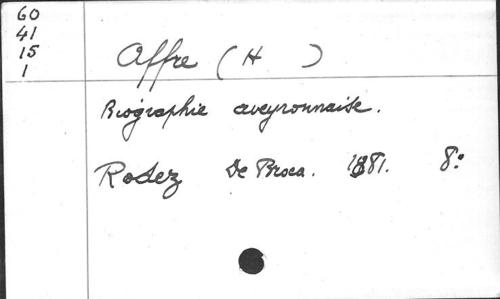 60
41
15
1
Affre (H )
Biographie aveyronnaise.
Rodez De Broca. 1881. 8°